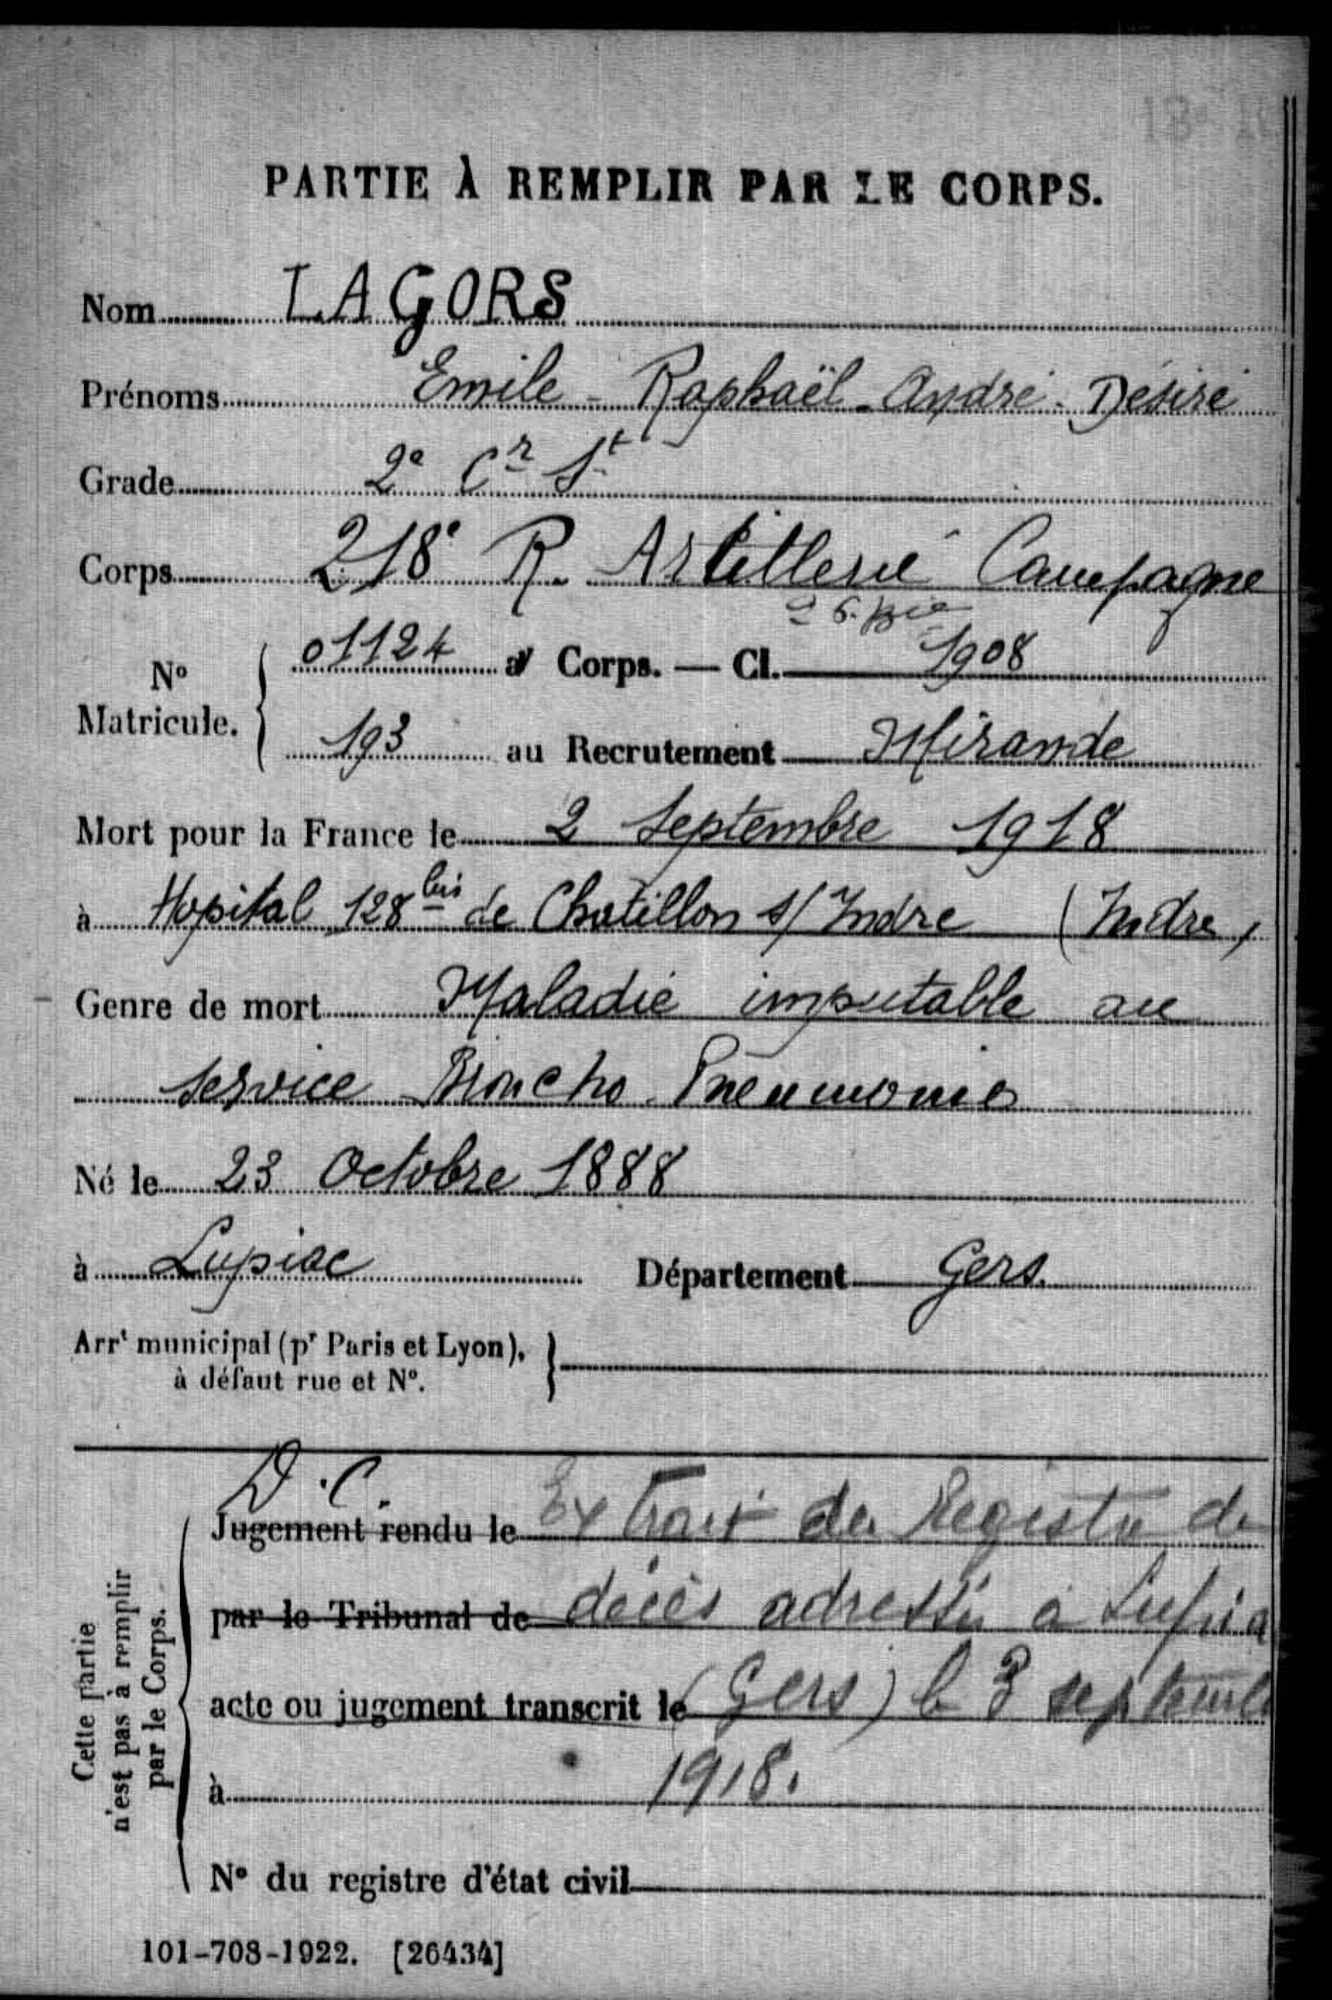 PARTIE À REMPLIR PAR LE CORPS.
Nom LAGORS
Prénoms Emile - Raphaël - André - Désiré
Grade 2e Cr St
Corps 218e R. Artillerie Campagne
01124 au Corps. — Cl. 1908
No Matricule.
193 au Recrutement Mirande
Mort pour la France le 2 Septembre 1918
à Hopital 128 bis de Chatillon s/ Indre (Indre)
Genre de mort Maladie imputable au
service Broncho-Pneumonie
Né le 23 Octobre 1888
à Lupiac Département Gers.
Arrt municipal (pr Paris et Lyon),
à défaut rue et No.
D.C.
Jugement rendu le Extrait du Registre de
par le Tribunal de décès adressé à Lupia
acte ou jugement transcrit le (Gers) le 3 septemb
à 1918.
No du registre d'état civil
Cette partie
n'est pas à remplir
par le Corps.
101-708-1922. [26434]